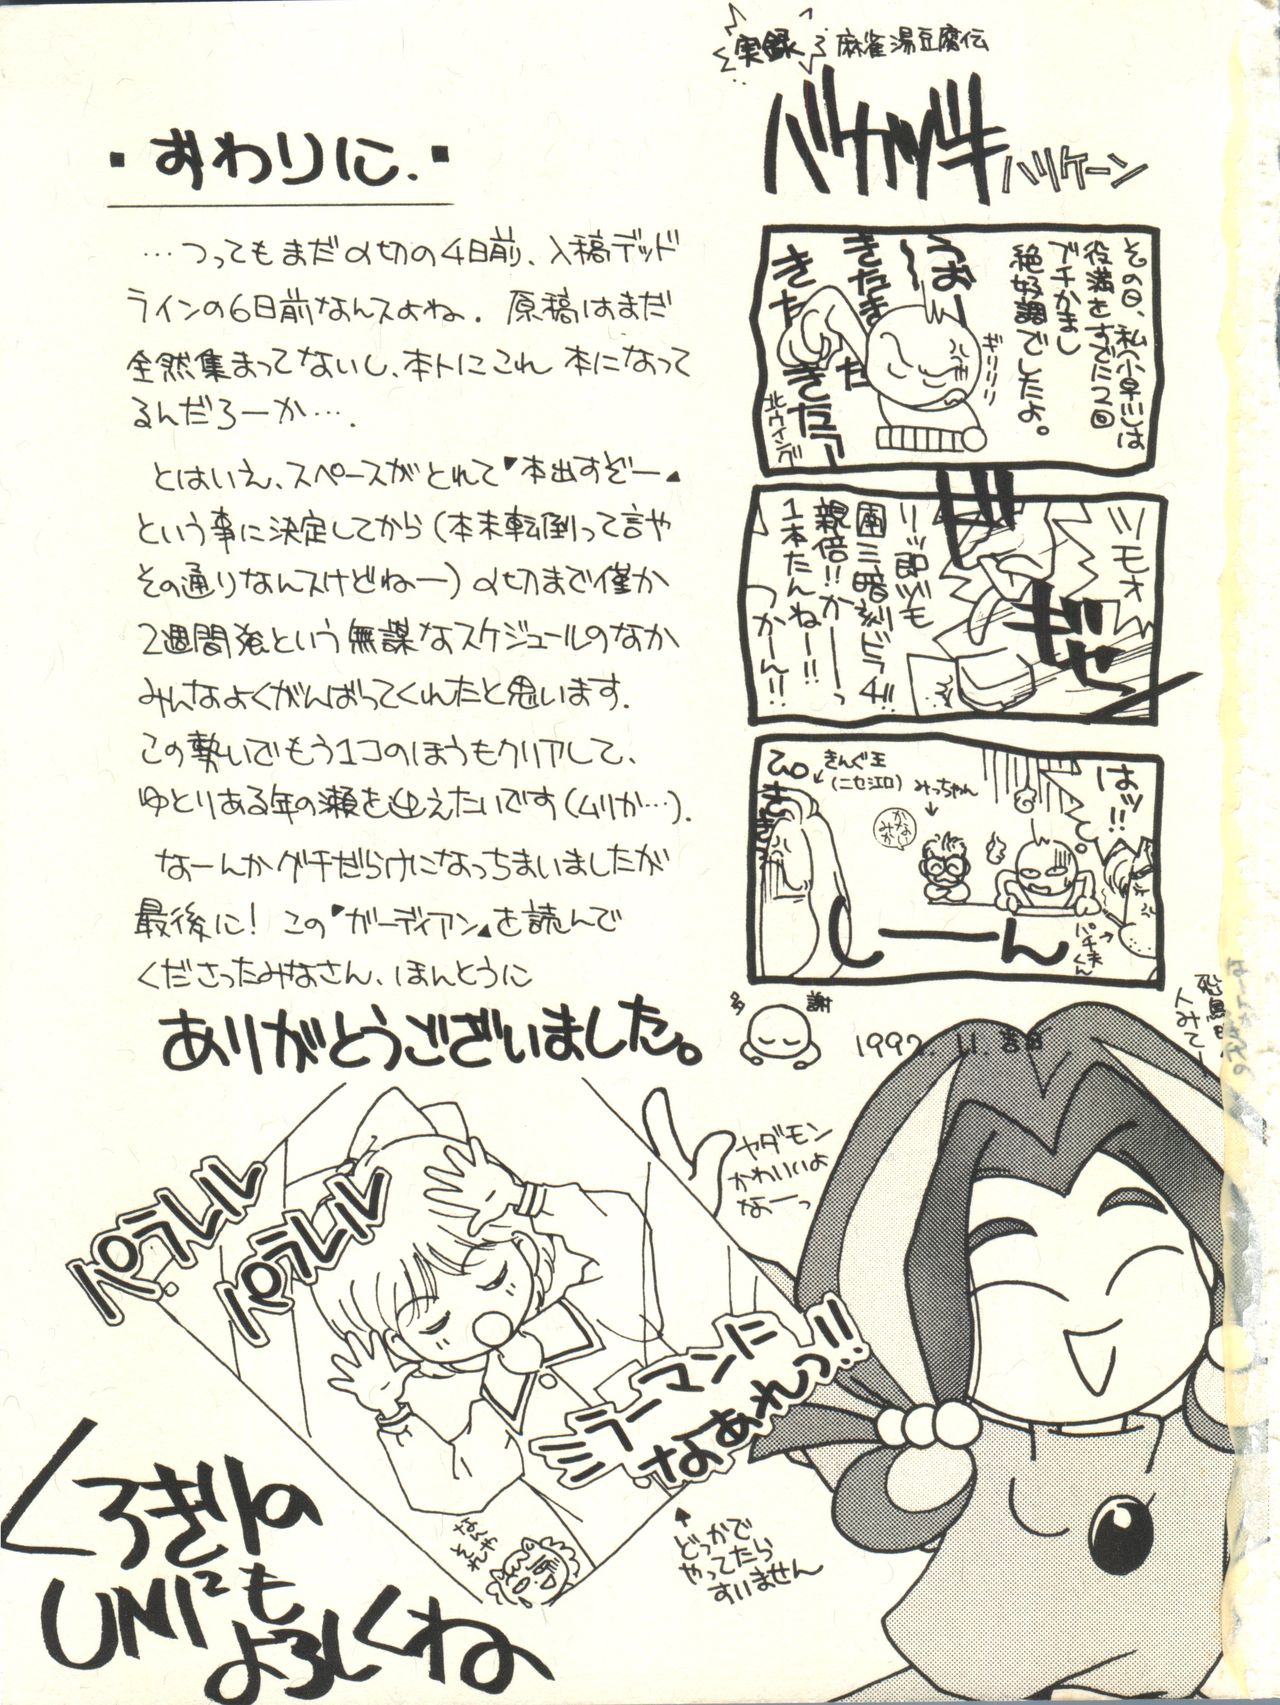 実録 麻雀湯豆腐伝
バカヅキ
ハリケーン
その日、私小早川は
役満をすでに2回
ブチかまし
絶好調でしたよ。
うおー
きたきた
きた
きたァー
ギリリリ
北ウイング
ツモォ
リーッ即ヅモ
南三暗刻ドラ4!!
親倍!!かーーっ
1本たんねー!!
つかーん!!
はッ!!
きんぐ王
(ニセ江口)
みっちゃん
パチ夫くん
しーーん
多謝
1992. 11. 吉日
・おわりに.・
…つってもまだ〆切の4日前、入稿デッド
ラインの6日前なんスよね. 原稿はまだ
全然集まってないし、本トにこれ 本になって
るんだろーか….
とはいえ、スペースがとれて"本出すぞー"
という事に決定してから(本末転倒って言や
その通りなんスけどねー)〆切まで僅か
2週間強という無謀なスケジュールのなか
みんなよくがんばってくれたと思います.
この勢いでもう1コのほうもクリアして、
ゆとりある年の瀬を迎えたいです(ムリか…).
なーんかグチだらけになっちまいましたが
最後に! この"ガーディアン"を読んで
くださったみなさん、ほんとうに
ありがとうございました。
ヤダモン
かわいいよ
なーっ
パラレル
パラレル
ミラーマンに
なあれっ!!
なんや
それゃ
どっかで
やってたら
すいません
くろきりの
UNI²も
よろしくね